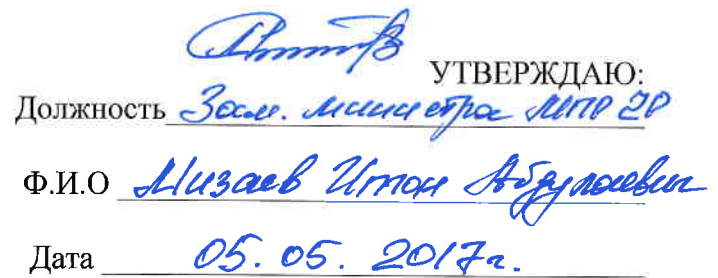 УТВЕРЖДАЮ:
Должность Зам. министра МПР ЧР
Ф.И.О Мизаев Абдулаевич
Дата 05.05.2017г.